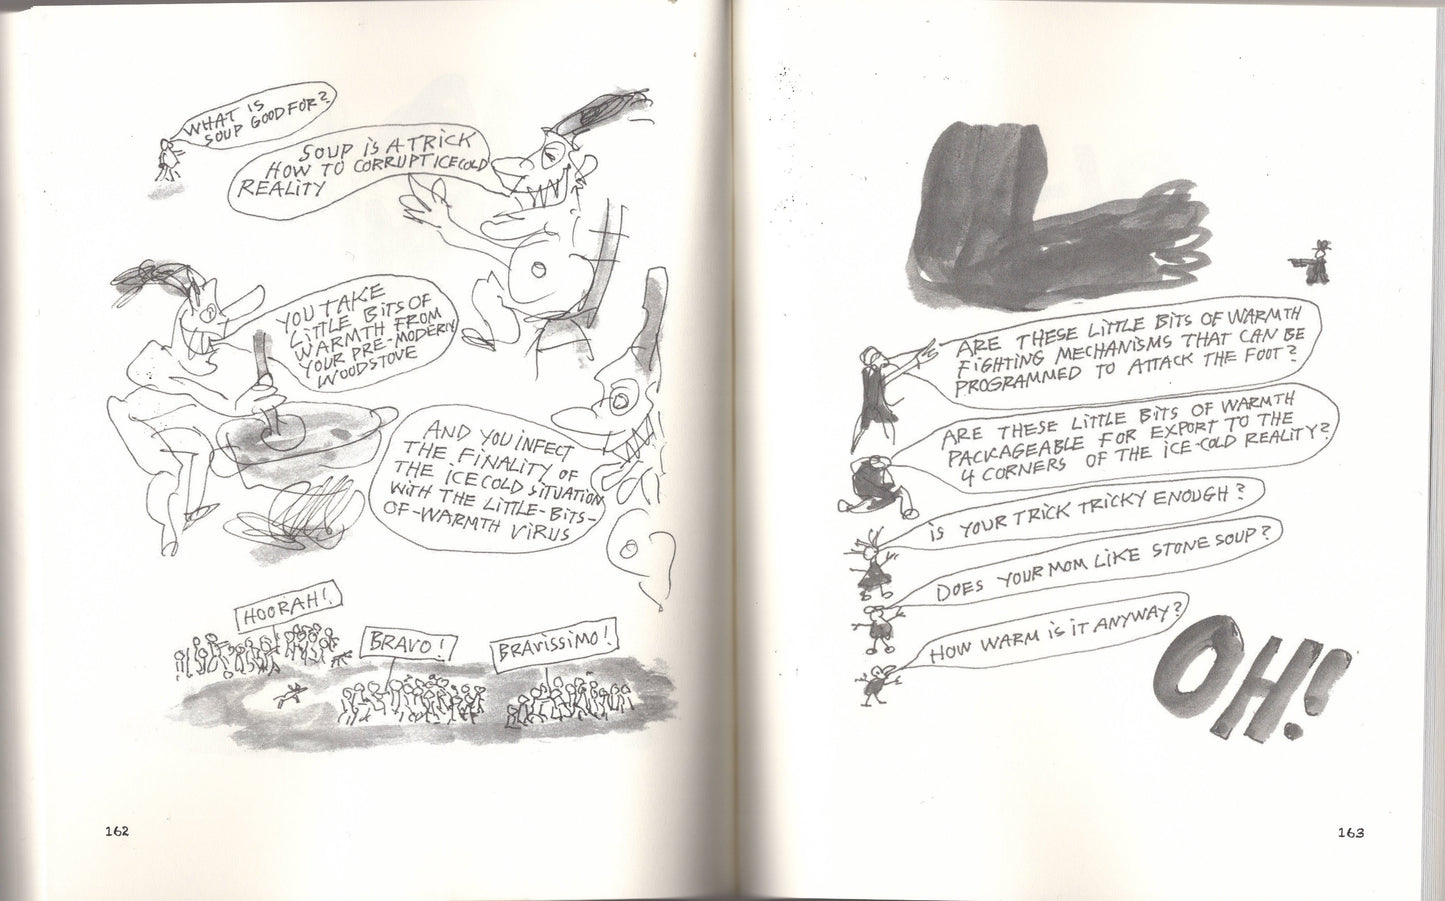 WHAT IS
SOUP GOOD FOR?
SOUP IS A TRICK
HOW TO CORRUPT ICECOLD
REALITY
YOU TAKE
LITTLE BITS OF
WARMTH FROM
YOUR PRE-MODERN
WOODSTOVE
AND YOU INFECT
THE FINALITY OF
THE ICECOLD SITUATION
WITH THE LITTLE-BITS-
OF-WARMTH VIRUS
HOORAH!
BRAVO!
BRAVISSIMO!
162
ARE THESE LITTLE BITS OF WARMTH
FIGHTING MECHANISMS THAT CAN BE
PROGRAMMED TO ATTACK THE FOOT?
ARE THESE LITTLE BITS OF WARMTH
PACKAGEABLE FOR EXPORT TO THE
4 CORNERS OF THE ICE-COLD REALITY?
IS YOUR TRICK TRICKY ENOUGH?
DOES YOUR MOM LIKE STONE SOUP?
HOW WARM IS IT ANYWAY?
OH!
163